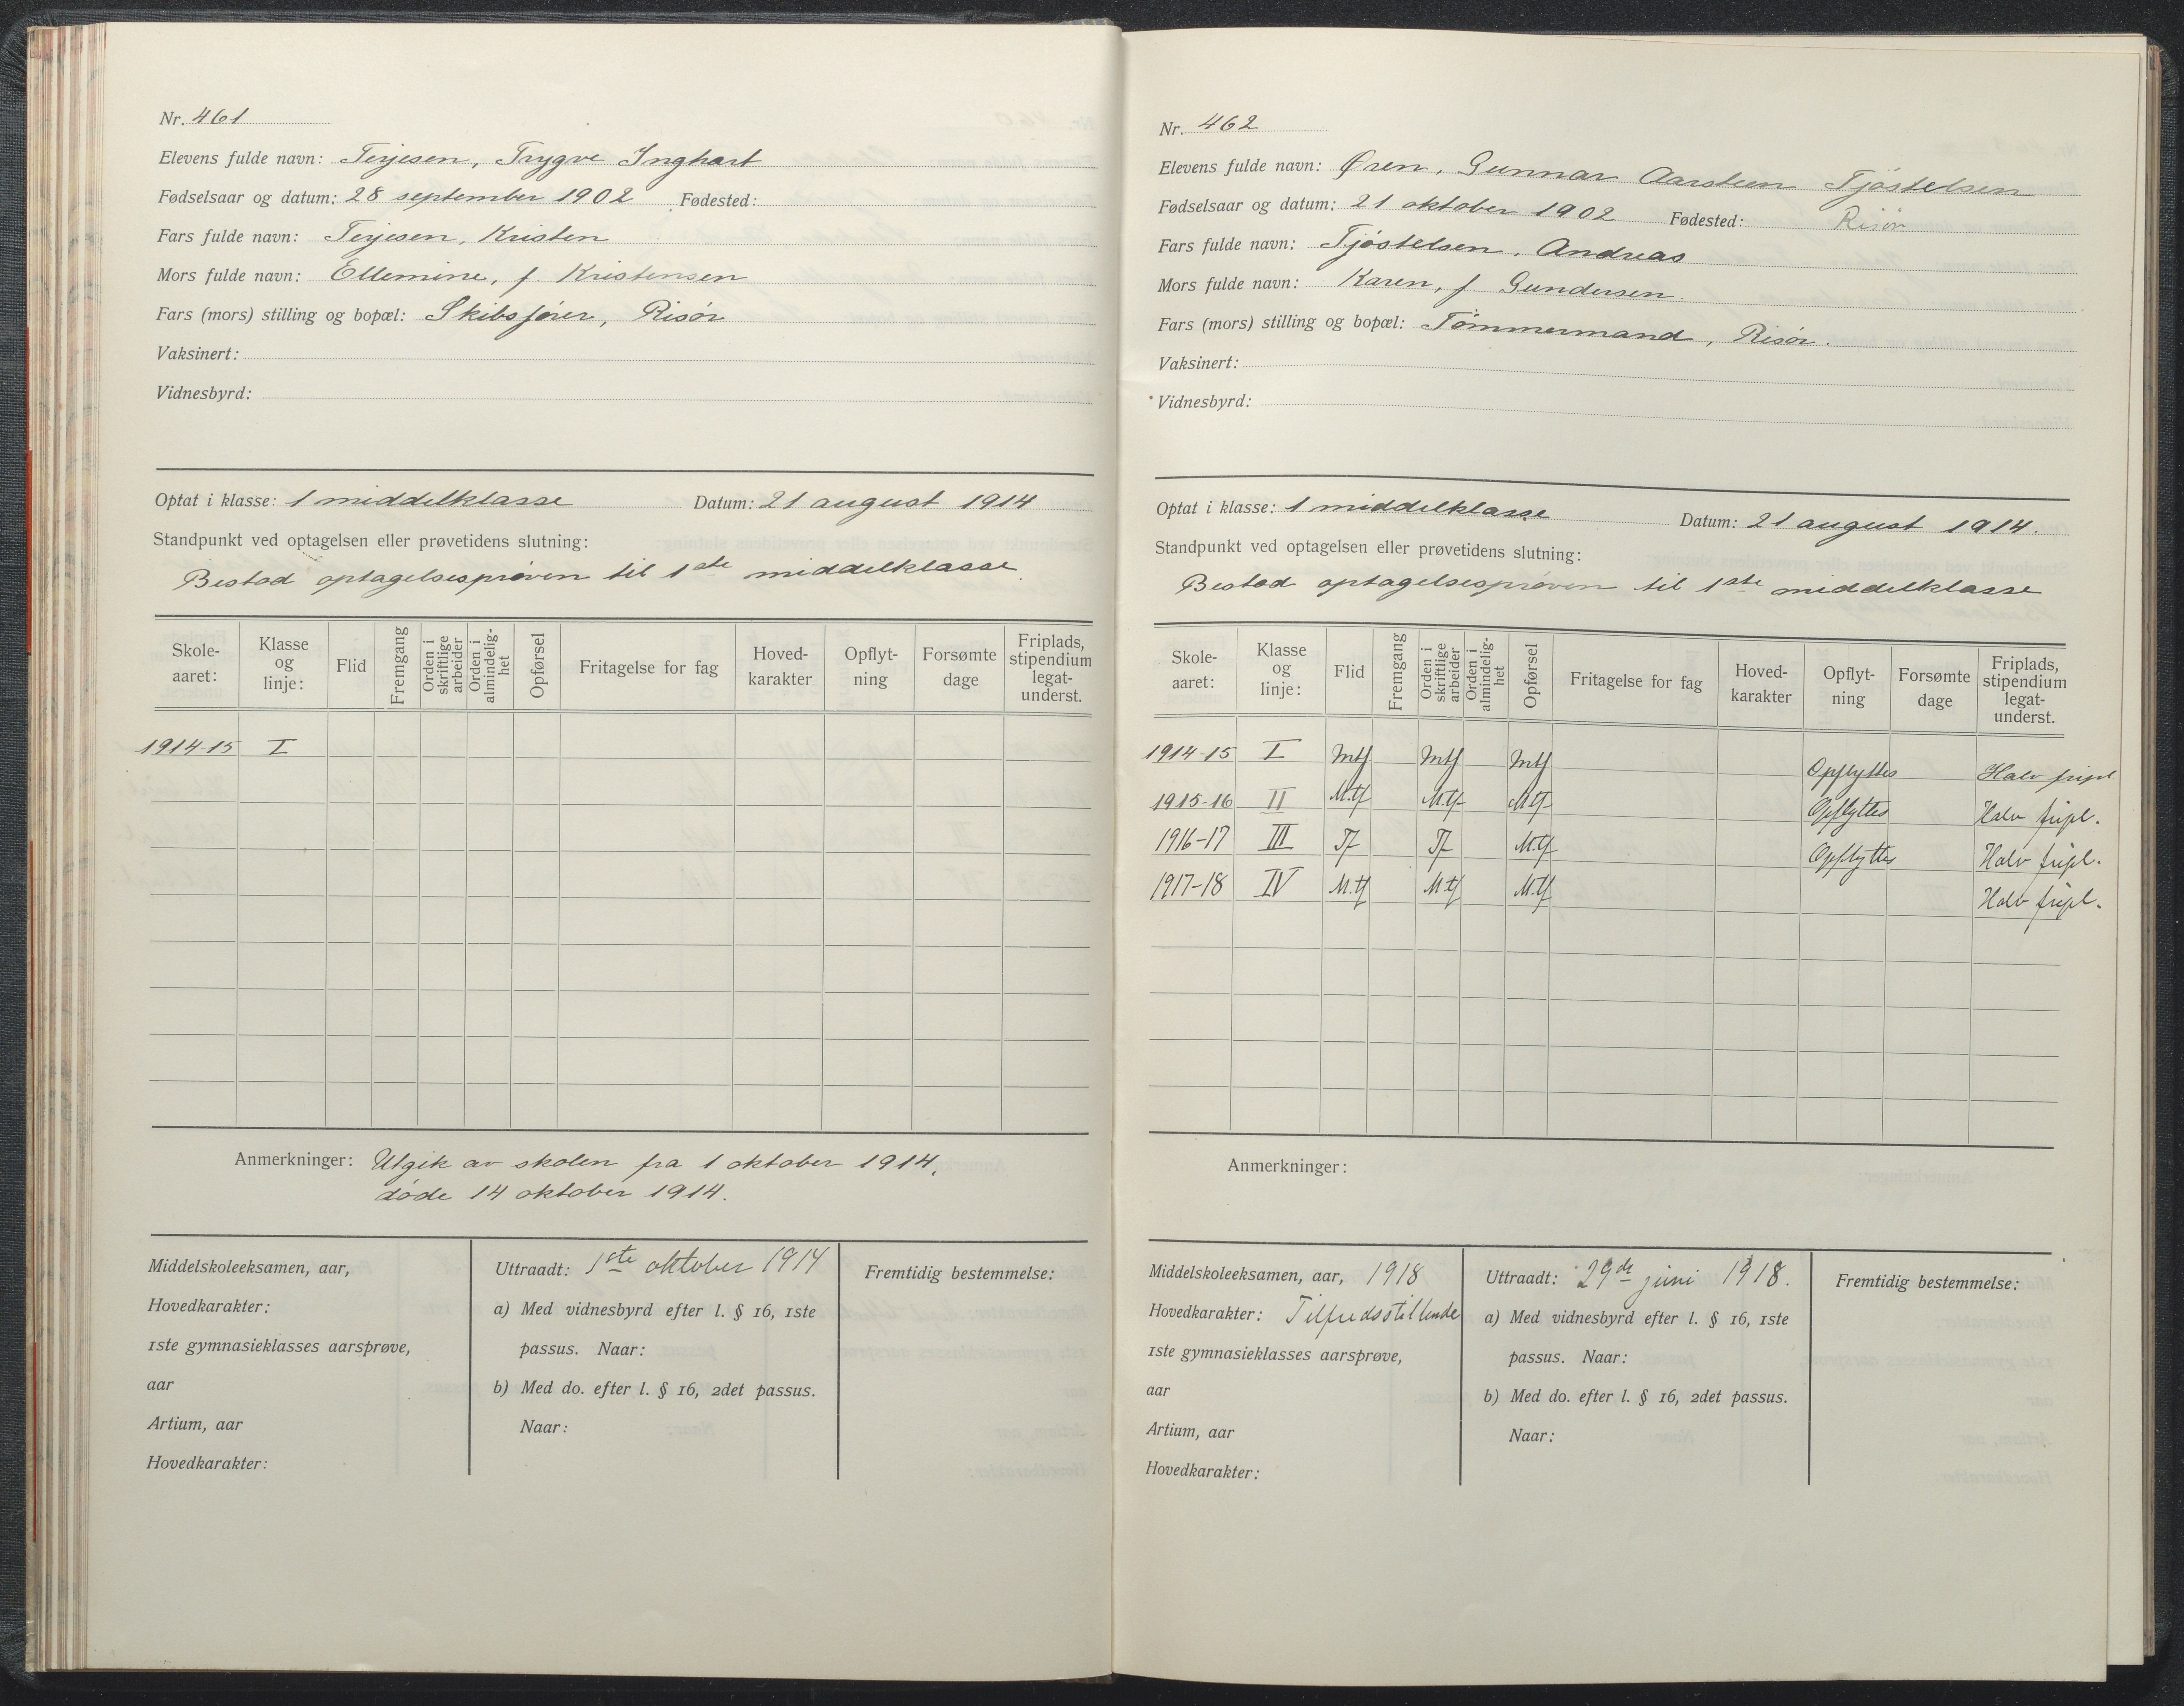 Nr. 461
Elevens fulde navn: Terjesen, Trygve Inghart
Fødselsaar og datum: 28 september 1902 Fødested:
Fars fulde navn: Terjesen, Kristen
Mors fulde navn: Ellemine, f. Kristensen
Fars (mors) stilling og bopæl: Skibsfører, Risør
Vaksinert:
Vidnesbyrd:
Optat i klasse: 1 middelklasse Datum: 21 august 1914
Standpunkt ved optagelsen eller prøvetidens slutning:
Bestod optagelsesprøven til 1ste middelklasse
Skole-aaret: Klasse og linje: Flid Fremgang Orden i skriftlige arbeider Orden i almindelig-het Opførsel Fritagelse for fag Hoved-karakter Opflyt-ning Forsømte dage Friplads, stipendium legat-underst.
1914-15 I
Anmerkninger: Utgik av skolen fra 1 oktober 1914,
døde 14 oktober 1914.
Middelskoleeksamen, aar,
Hovedkarakter:
1ste gymnasieklasses aarsprøve,
aar
Artium, aar
Hovedkarakter:
Uttraadt: 1ste oktober 1914
a) Med vidnesbyrd efter l. § 16, 1ste
passus. Naar:
b) Med do. efter l. § 16, 2det passus.
Naar:
Fremtidig bestemmelse:
Nr. 462
Elevens fulde navn: Øren, Gunnar Aarsteen Tjøstelsen
Fødselsaar og datum: 21 oktober 1902 Fødested: Risør
Fars fulde navn: Tjøstelsen, Andreas
Mors fulde navn: Karen, f. Gundersen.
Fars (mors) stilling og bopæl: Tømmermand, Risør.
Vaksinert:
Vidnesbyrd:
Optat i klasse: 1 middelklasse Datum: 21 august 1914.
Standpunkt ved optagelsen eller prøvetidens slutning:
Bestod optagelsesprøven til 1ste middelklasse
Skole-aaret: Klasse og linje: Flid Fremgang Orden i skriftlige arbeider Orden i almindelig-het Opførsel Fritagelse for fag Hoved-karakter Opflyt-ning Forsømte dage Friplads, stipendium legat-underst.
1914-15 I Mtf Mtf Mtf Opflyttes Halv fripl.
1915-16 II M.tf M.tf M.tf Opflyttes Halv fripl.
1916-17 III Tf Tf M.tf Opflyttes Halv fripl.
1917-18 IV M.tf M.tf M.tf Halv fripl.
Anmerkninger:
Middelskoleeksamen, aar, 1918
Hovedkarakter: Tilfredsstillende
1ste gymnasieklasses aarsprøve,
aar
Artium, aar
Hovedkarakter:
Uttraadt: 29de juni 1918.
a) Med vidnesbyrd efter l. § 16, 1ste
passus. Naar:
b) Med do. efter l. § 16, 2det passus.
Naar:
Fremtidig bestemmelse: